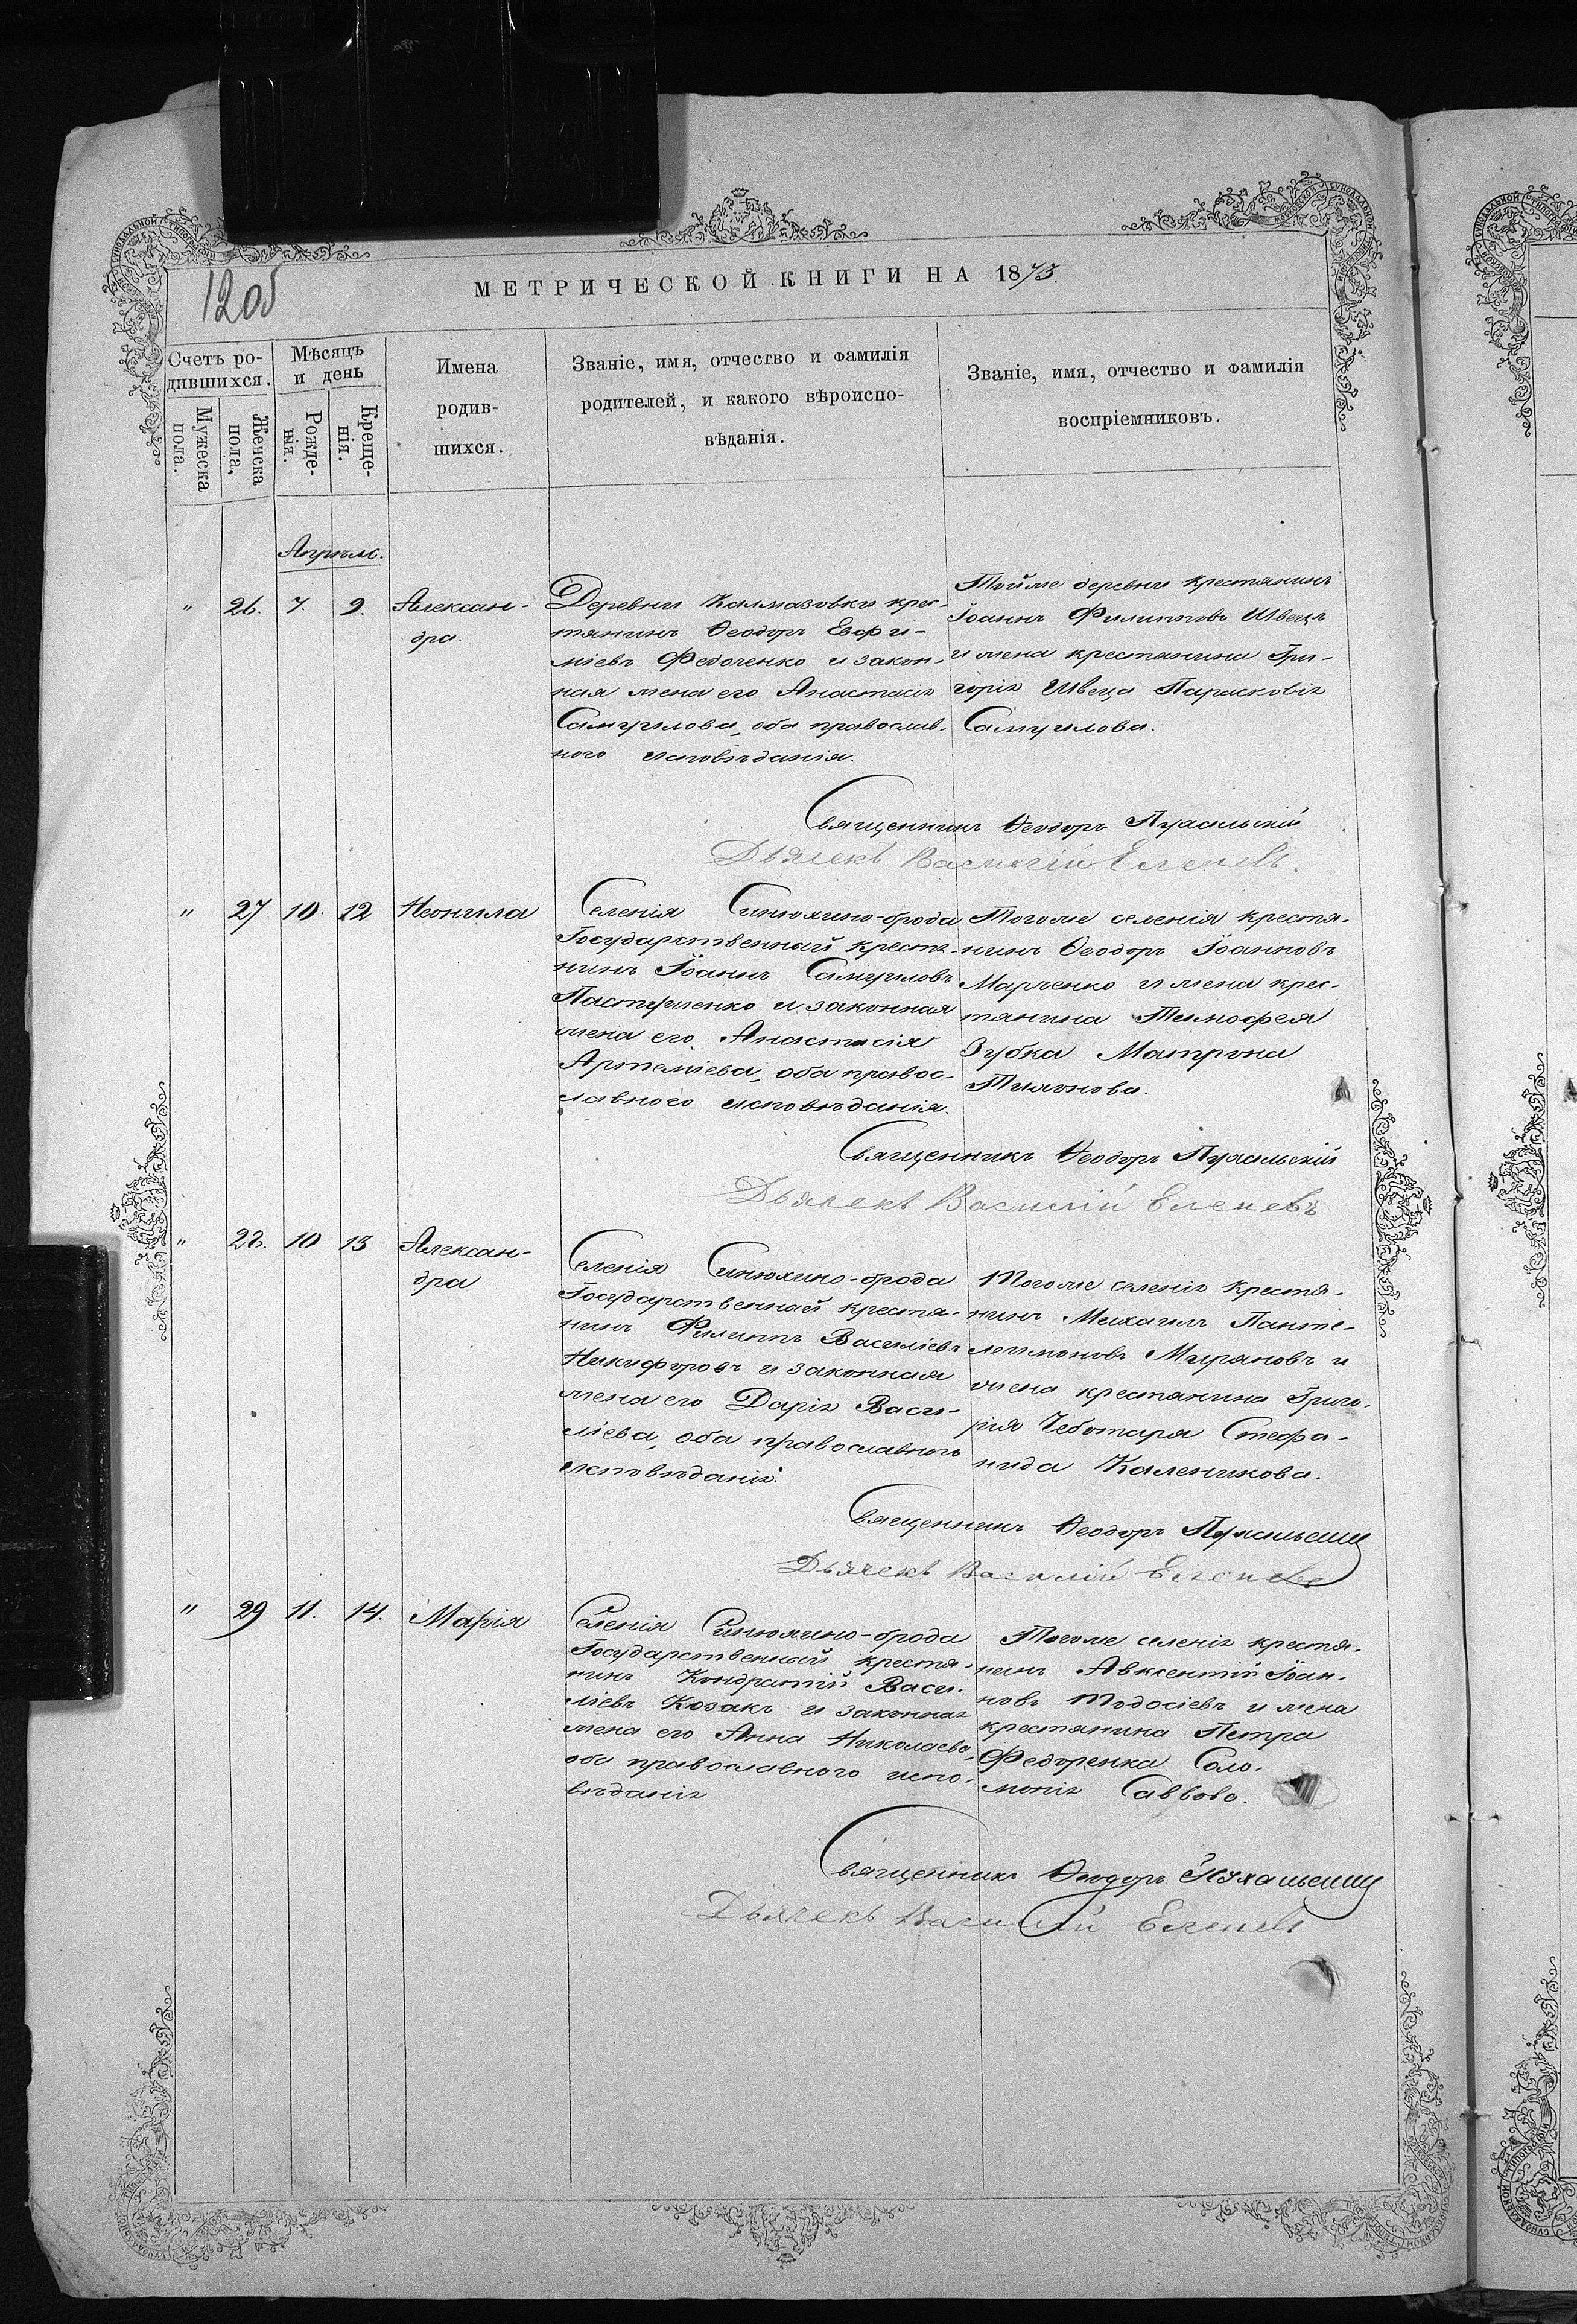 12об
МЕТРИЧЕСКОЙ КНИГИ НА 1873.
Счетъ родившихся.
Мѣсяцъ и день
Имена родившихся.
Званіе, имя, отчество и фамилія
родителей, и какого вѣроиспо-
вѣданія.
Званіе, имя, отчество и фамилія
воспріемниковъ.
Мужеска пола.
Женска пола,
Рожде-
нія.
Креще-
нія.
Апрѣль.
" 26. 7. 9. Алексан-
дра.
Деревни Калмазовки крес-
тянинъ Ѳеодоръ Евфи-
міевъ Федоченко и закон-
ная жена его Анастасія
Самуилова, оба православ-
ного исповѣданія.
Тойже деревни крестянинъ
Іоаннъ Филиповъ Швецъ
и жена крестянина Гри-
горія Швеца Парасковія
Самуилова.
Священникъ Ѳеодоръ
Дьячекъ Василій
" 27 10. 12 Неонила
Селенія Синюхино-брода
Государственный крестя-
нинъ Іоаннъ Самуиловъ
Пастушенко и законная
жена его Анастасія
Артеміева, оба правос-
лавного исповѣданія.
Тогоже селенія крестя-
нинъ Ѳеодоръ Іоанновъ
Марченко и жена крес-
тянина Тимофея
Зубка Матрона
Тихонова.
Священникъ Ѳеодоръ
Дьячекъ Василій
" 28. 10 13 Алексан-
дра
Селенія Синюхино-брода
Государственный крестя-
нинъ Филиппъ Василіевъ
Никифоровъ и законная
жена его Дарія Васи-
ліева, оба православного
исповѣданія.
Тогоже селенія крестя-
нинъ Михаилъ Панте-
леимоновъ Мирановъ и
жена крестянина Григо-
рия Чеботаря Стефа-
нида Каленикова.
Священникъ Ѳеодоръ
Дьячекъ Василій
" 29 11. 14. Марія
Селенія Синюхино-брода
Государственный крестя-
нинъ Кондратій Васи-
ліевъ Козакъ и законная
жена его Анна Николаева,
оба православного испо-
вѣданія
Тогоже селенія крестя-
нинъ Авксентій Іоан-
новъ Тодосіевъ и жена
крестянина Петра
Федоренка Соло-
монія Саввова.
Священникъ Ѳеодоръ
Дьячекъ Василій